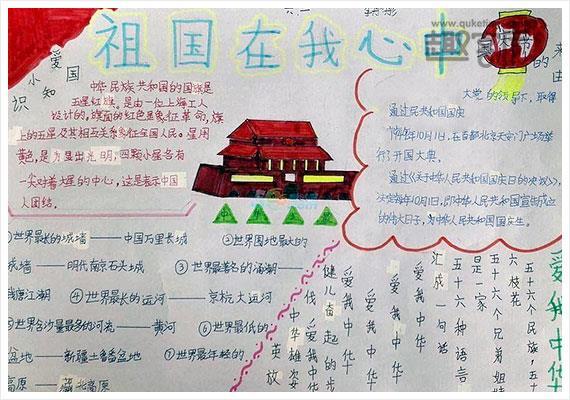 祖国在我心中
爱国
小知识
中华民族共和国的国旗是
五星红旗。是由一位上海工人
设计的,旗面的红色是象征革命,旗
上的五星及其相互关系象征全国人民。星用
黄色,是为显出光明,四颗小星各有
一尖对着大星的中心,这是表示中国
人团结。
的来
的领导下,取得
通过民共和国国庆
1949年10月1日,在首都北京天安门广场举
行了开国大典。
通过《关于中华人民共和国国庆日的决议》,
决定每年10月1日,即中华人民共和国宣告成立
的伟大日子,为中华人民共和国国庆生。
①世界最长的城墙——中国万里长城
②世界围地最大的
城墙——明代南京石头城
③世界最著名的涌潮——
钱塘江潮
④世界最长的运河——京杭大运河
⑤世界含沙量最多的河流——黄河
⑥世界最低的
盆地——新疆吐鲁番盆地
⑦世界最年轻的
高原——藏北高原
爱我中华
五十六个民族,五十
六枝花
五十六个兄弟姐妹
是一家
五十六种语言
汇成一句话
爱我中华
爱我中华
爱我中华
健儿奋起的步